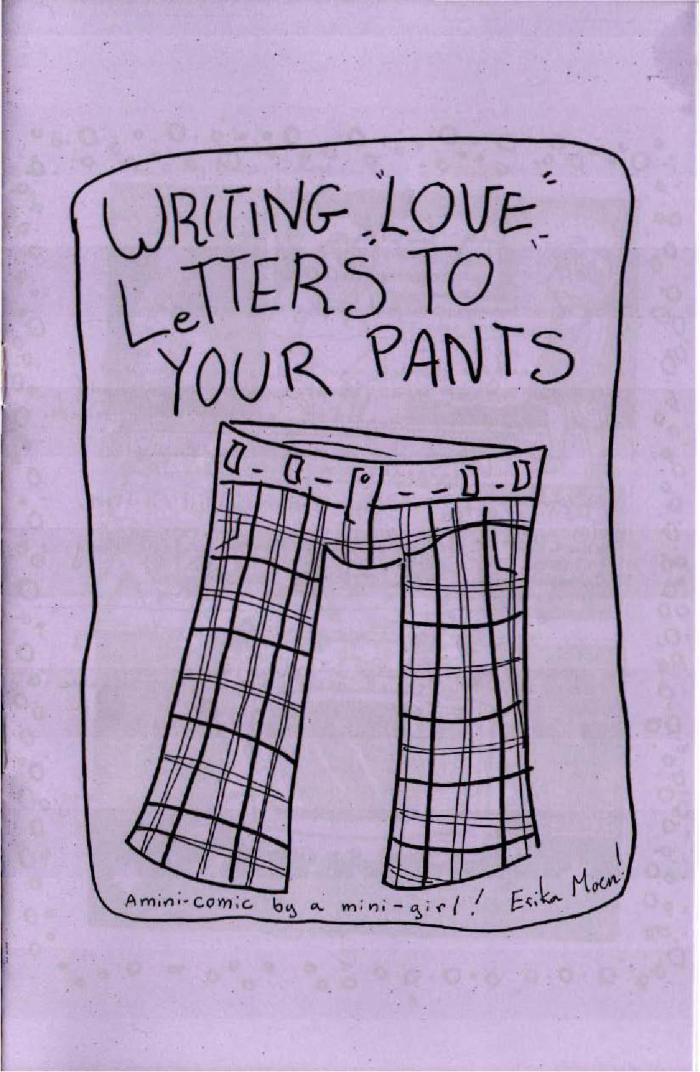 WRITING "LOVE"
LeTTERS TO
YOUR PANTS
Amini-comic by a mini-girl! Erika Moen!